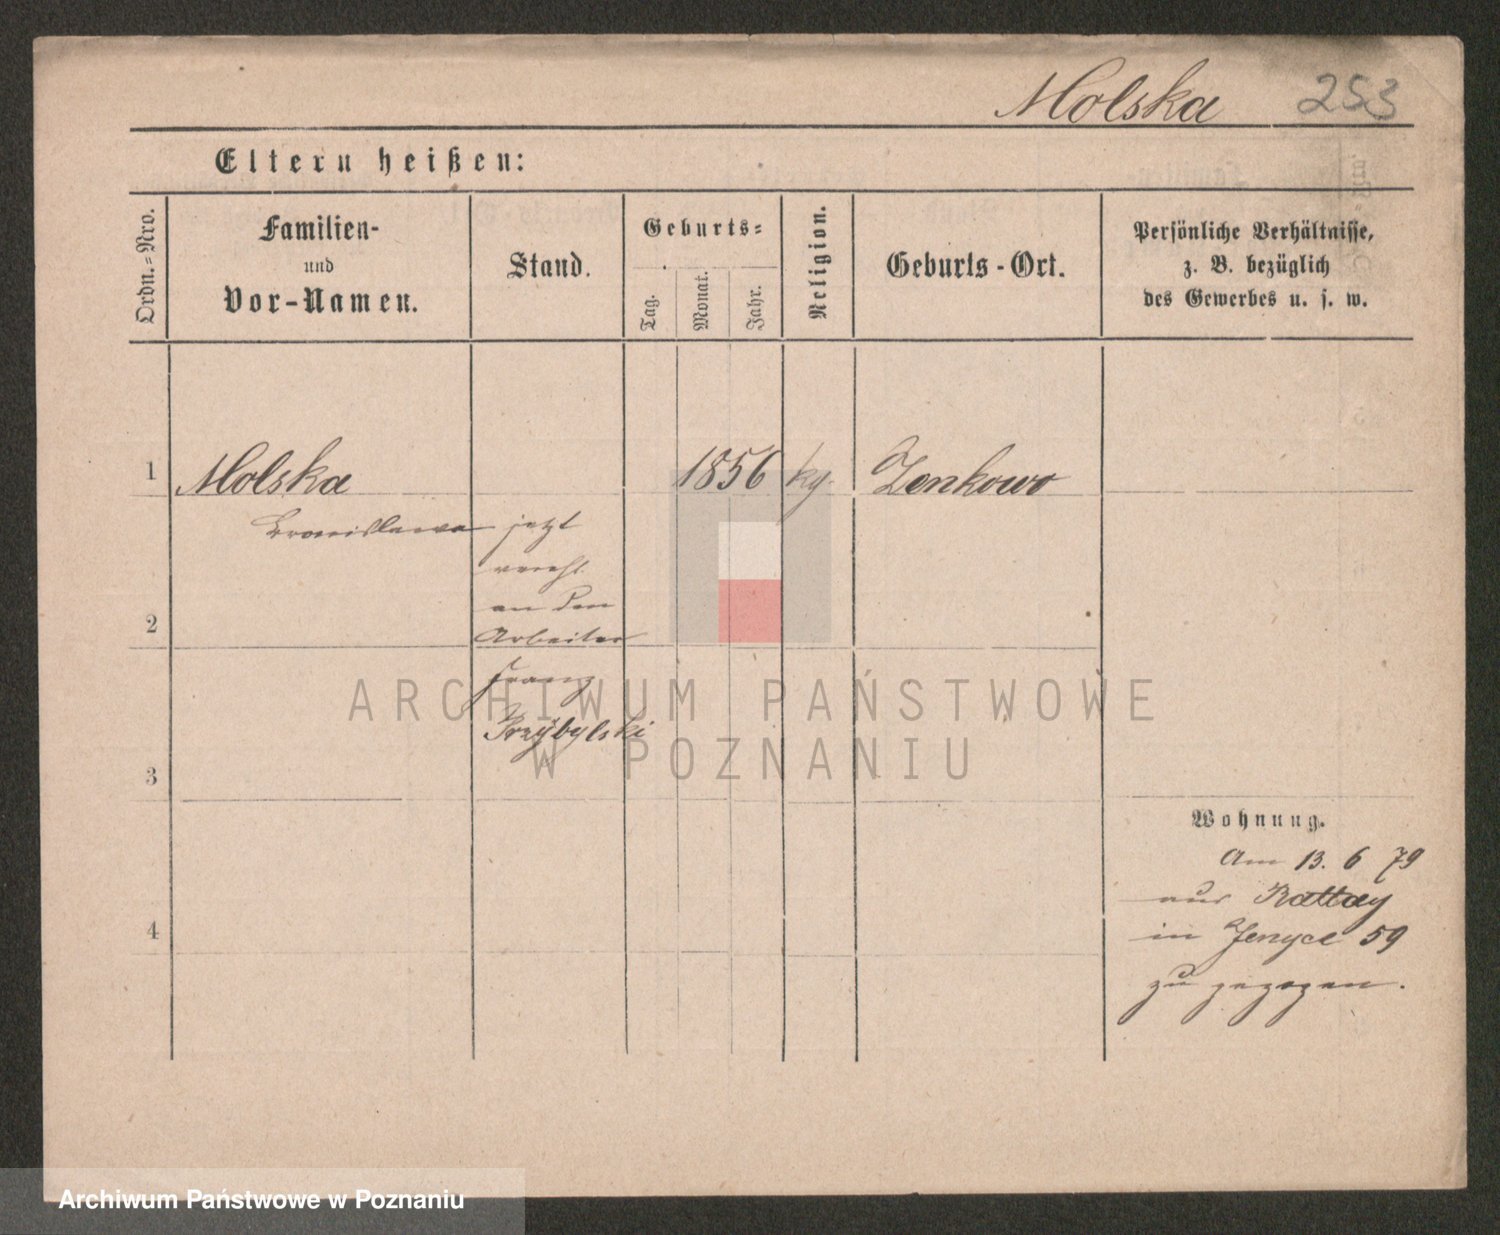 Molska 253
Eltern heißen:
Ordn.=Nro.
Familien-
und
Vor-Namen.
Stand.
Geburts=
Tag.
Monat.
Jahr.
Religion.
Geburts-Ort.
Persönliche Verhältnisse,
z. B. bezüglich
des Gewerbes u. s. w.
1 Molska 1856 kg. Zenkowo
Bronislawa jetzt
verehl.
an den
2
Arbeiter
Franz
Przybylski
3
Wohnung.
Am 13. 6 79
aus Rattay
4
in Jerzyce 59
zu gezogen.
ARCHIWUM PAŃSTWOWE
W POZNANIU
Archiwum Państwowe w Poznaniu